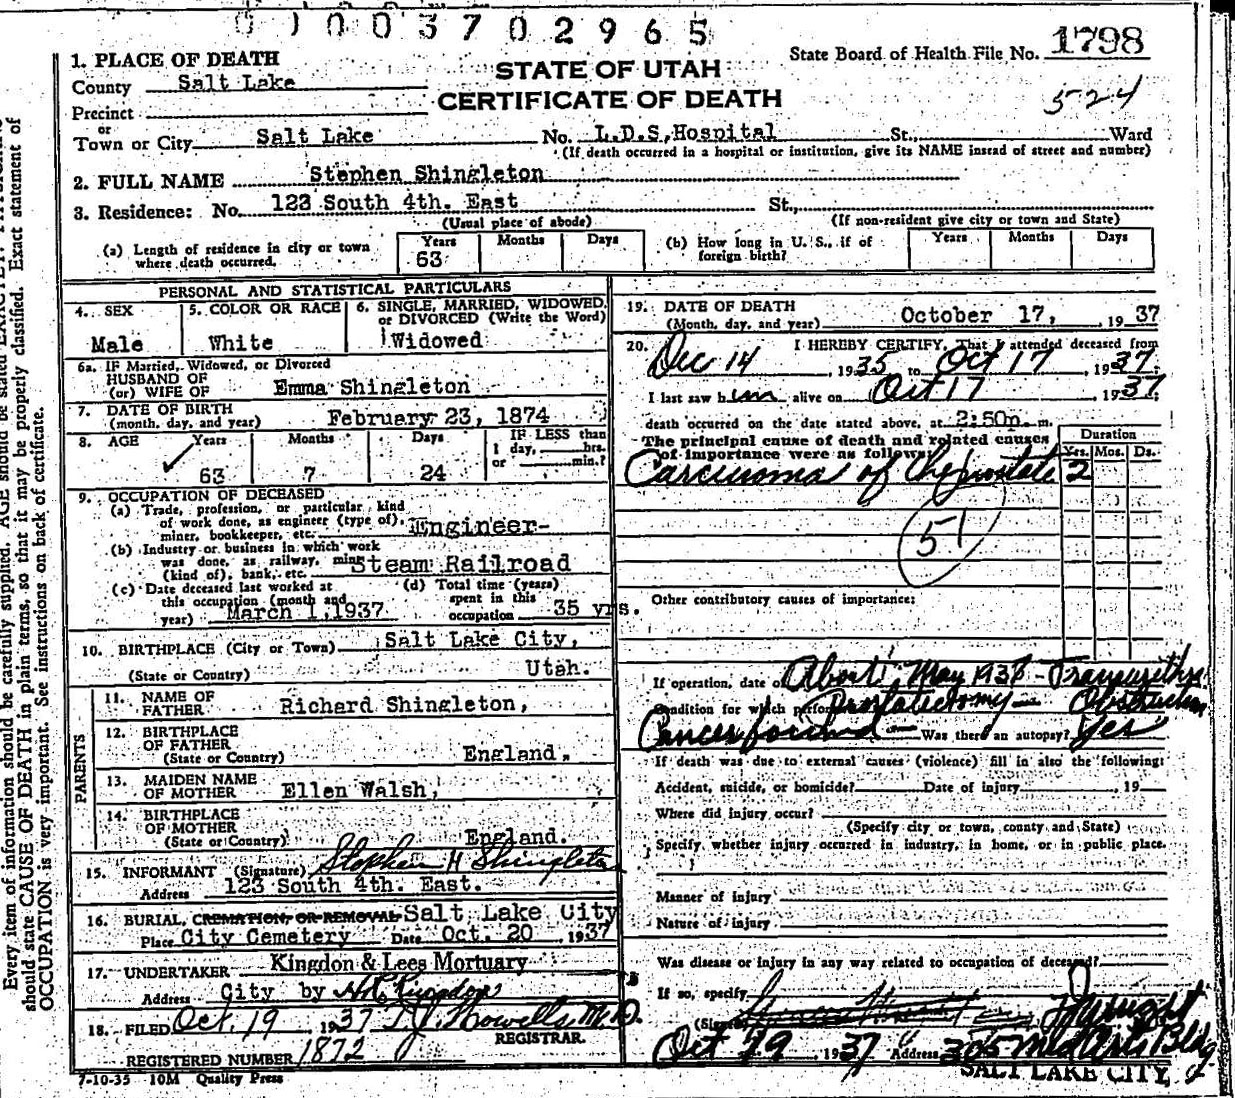 01003702965
State Board of Health File No. 1798
524
STATE OF UTAH
CERTIFICATE OF DEATH
1. PLACE OF DEATH
County Salt Lake
Precinct
or
Town or City Salt Lake No. L.D.S, Hospital St., Ward
(If death occurred in a hospital or institution, give its NAME instead of street and number)
2. FULL NAME Stephen Shingleton
3. Residence: No. 123 South 4th. East St.,
(Usual place of abode) (If non-resident give city or town and State)
(a) Length of residence in city or town where death occurred. Years 63 Months Days
(b) How long in U. S., if of foreign birth? Years Months Days
PERSONAL AND STATISTICAL PARTICULARS
4. SEX Male
5. COLOR OR RACE White
6. SINGLE, MARRIED, WIDOWED, or DIVORCED (Write the Word) Widowed
6a. IF Married, Widowed, or Divorced
HUSBAND OF
(or) WIFE OF Emma Shingleton
7. DATE OF BIRTH
(month, day, and year) February 23, 1874
8. AGE Years 63 Months 7 Days 24 IF LESS than 1 day, hrs. or min.?
9. OCCUPATION OF DECEASED
(a) Trade, profession, or particular kind
of work done, as engineer (type of),
miner, bookkeeper, etc. Engineer-
(b) Industry or business in which work
was done, as railway, mine
(kind of), bank, etc. Steam Railroad
(c) Date deceased last worked at
this occupation (month and
year) March 1,1937
(d) Total time (years)
spent in this
occupation 35 yrs.
10. BIRTHPLACE (City or Town) Salt Lake City,
(State or Country) Utah.
PARENTS
11. NAME OF
FATHER Richard Shingleton,
12. BIRTHPLACE
OF FATHER
(State or Country) England,
13. MAIDEN NAME
OF MOTHER Ellen Walsh,
14. BIRTHPLACE
OF MOTHER
(State or Country) England.
15. INFORMANT (Signature) Stephen H Shingleton
Address 123 South 4th. East.
16. BURIAL, CREMATION, OR REMOVAL Salt Lake City
Place City Cemetery Date Oct. 20 , 1937
17. UNDERTAKER Kingdon & Lees Mortuary
Address City by
18. FILED Oct. 19 , 1937 T.J. Howells M.D.
REGISTRAR.
REGISTERED NUMBER 1872
7-10-35 10M Quality Press
19. DATE OF DEATH
(Month, day, and year) October 17, , 1937
20. I HEREBY CERTIFY, That I attended deceased from
Dec 14 , 1935 to Oct 17 , 1937.
I last saw him alive on Oct 17 , 1937
death occurred on the date stated above, at 2:50p. m.
The principal cause of death and related causes
of importance were as follows:
Duration
Yrs. Mos. Ds.
Carcinoma of the prostate 2
51
Other contributory causes of importance:
If operation, date of About May 1938 - Transurethral
Condition for which performed Prostatectomy - Obstruction
Cancer found - Was there an autopsy? Yes
If death was due to external causes (violence) fill in also the following:
Accident, suicide, or homicide? Date of injury , 19
Where did injury occur?
(Specify city or town, county and State)
Specify whether injury occurred in industry, in home, or in public place.
Manner of injury
Nature of injury
Was disease or injury in any way related to occupation of deceased?
If so, specify
Oct 19 1937 Address 305 Med Arts Bldg
SALT LAKE CITY,
Every item of information should be carefully supplied. AGE should be stated EXACTLY.
should state CAUSE OF DEATH in plain terms, so that it may be properly classified. Exact statement of
OCCUPATION is very important. See instructions on back of certificate.